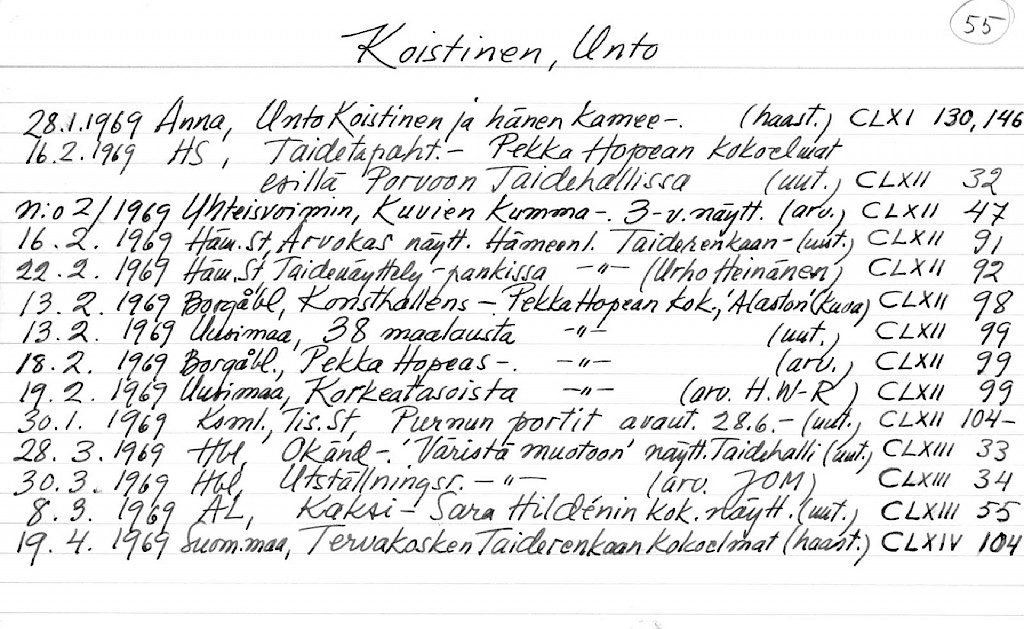 55
Koistinen, Unto
28.1.1969 Anna, Unto Koistinen ja hänen kamee-. (haast.) CLXI 130, 146
16.2.1969 HS, Taidetapaht.- Pekka Hopean kokoelmat
esillä Porvoon Taidehallissa (uut.) CLXII 32
n:o 2/1969 Yhteisvoimin, Kuvien Kumma-. 3-v.näytt. (arv.) CLXII 47
16.2.1969 Häm.St, Arvokas näytt. Hämeenl. Taiderenkaan-(uut.) CLXII 91
22.2.1969 Häm.St, Taidenäyttely-pankissa -"- (Urho Heinänen) CLXII 92
13.2.1969 Borgåbl, Konsthallens - Pekka Hopean kok., 'Alaston' (kuva) CLXII 98
13.2.1969 Uusimaa, 38 maalausta -"- (uut.) CLXII 99
18.2.1969 Borgåbl., Pekka Hopeas-. -"- (arv.) CLXII 99
19.2.1969 Uusimaa, Korkeatasoista -"- (arv. H.W-R) CLXII 99
30.1.1969 Koml., Tis.St, Purnun portit avaut. 28.6.- (uut.) CLXII 104-
28.3.1969 Hbl, Okänd-. 'Väristä muotoon' näytt. Taidehalli (uut.) CLXIII 33
30.3.1969 Hbl, Utställningsr. -"- (arv. JOM) CLXIII 34
8.3.1969 AL, Kaksi- Sara Hildénin kok. näytt. (uut.) CLXIII 55
19.4.1969 Suom.maa, Tervakosken Taiderenkaan kokoelmat (haast.) CLXIV 104